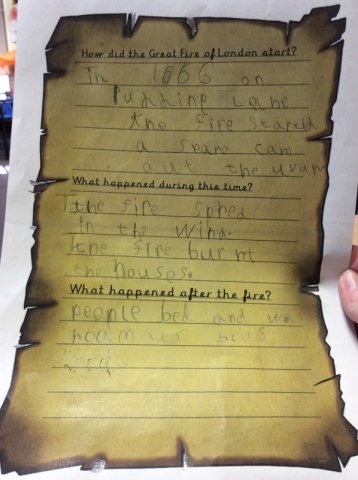 How did the Great Fire of London start?
In 1666 on
Pudding Lane
the fire starcid
a spare cam
out the uvun
What happened during this time?
the fire spred
in the wind.
the fire burnt
the houses.
What happened after the fire?
people bed and